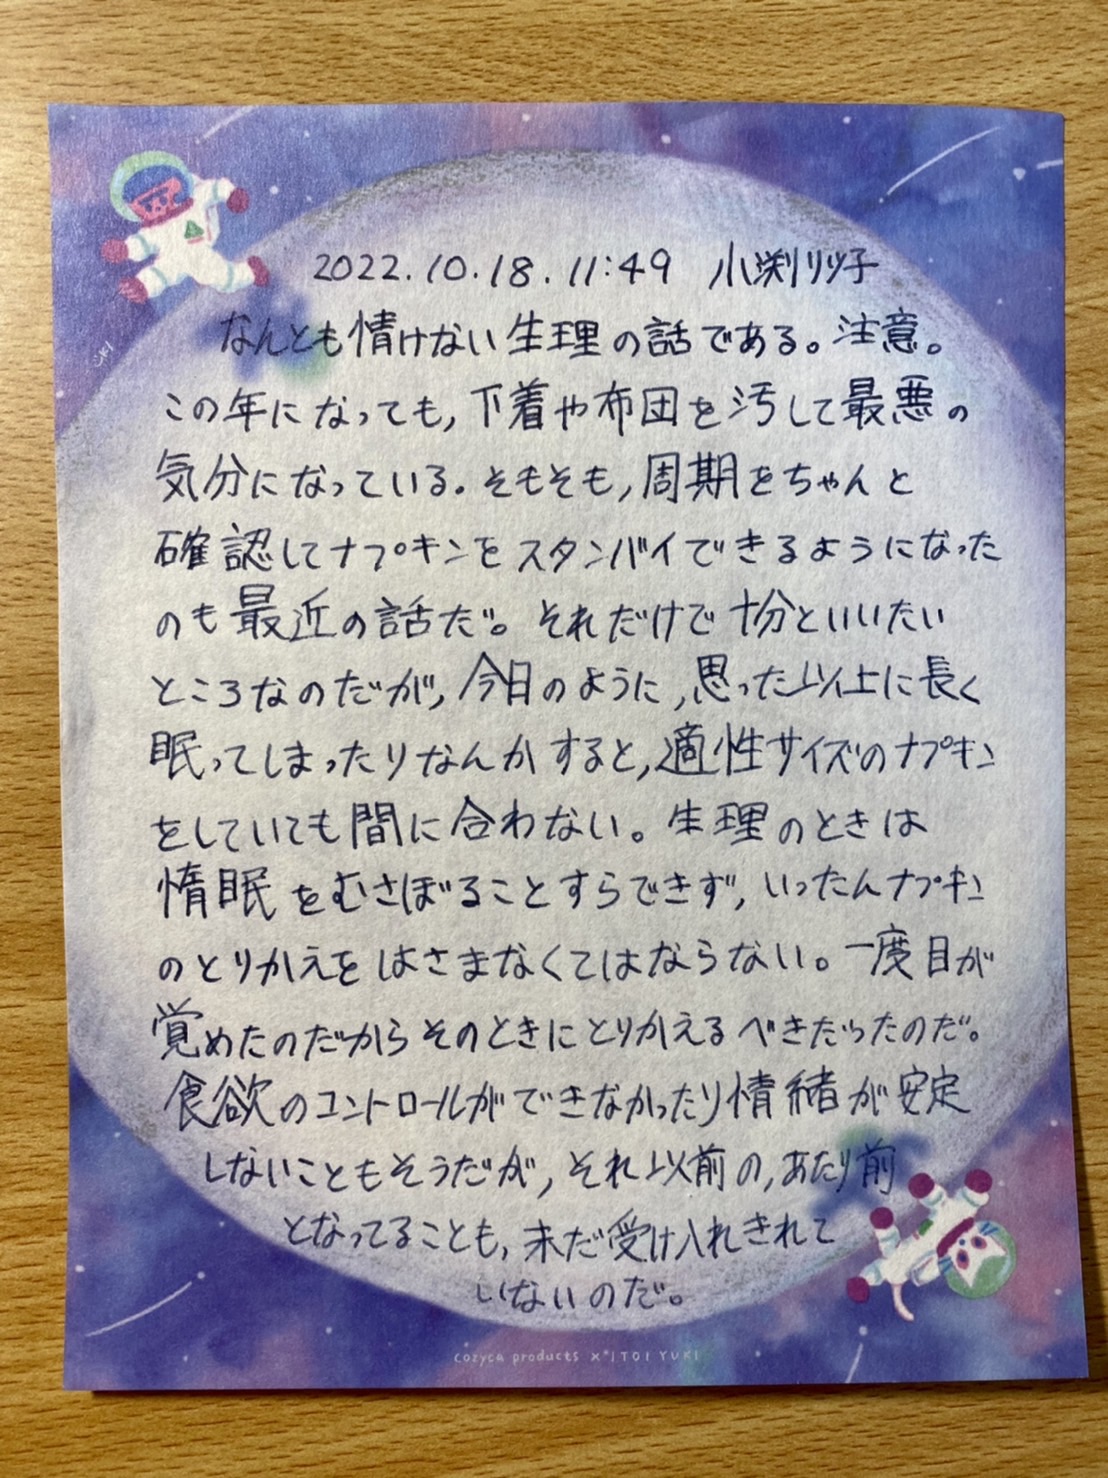 2022.10.18.11:49 小渕リツ子
なんとも情けない生理の話である。注意。
この年になっても,下着や布団を汚して最悪の
気分になっている。そもそも,周期をちゃんと
確認してナプキンをスタンバイできるようになった
のも最近の話だ。それだけで十分といいたい
ところなのだが,今日のように,思った以上に長く
眠ってしまったりなんかすると,適性サイズのナプキン
をしていても間に合わない。生理のときは
惰眠をむさぼることすらできず,いったんナプキン
のとりかえをはさまなくてはならない。一度目が
覚めたのだからそのときにとりかえるべきだったのだ。
食欲のコントロールができなかったり情緒が安定
しないこともそうだが,それ以前の,あたり前
となってることも,未だ受け入れきれて
いないのだ。
cozyca products × ITOI YUKI